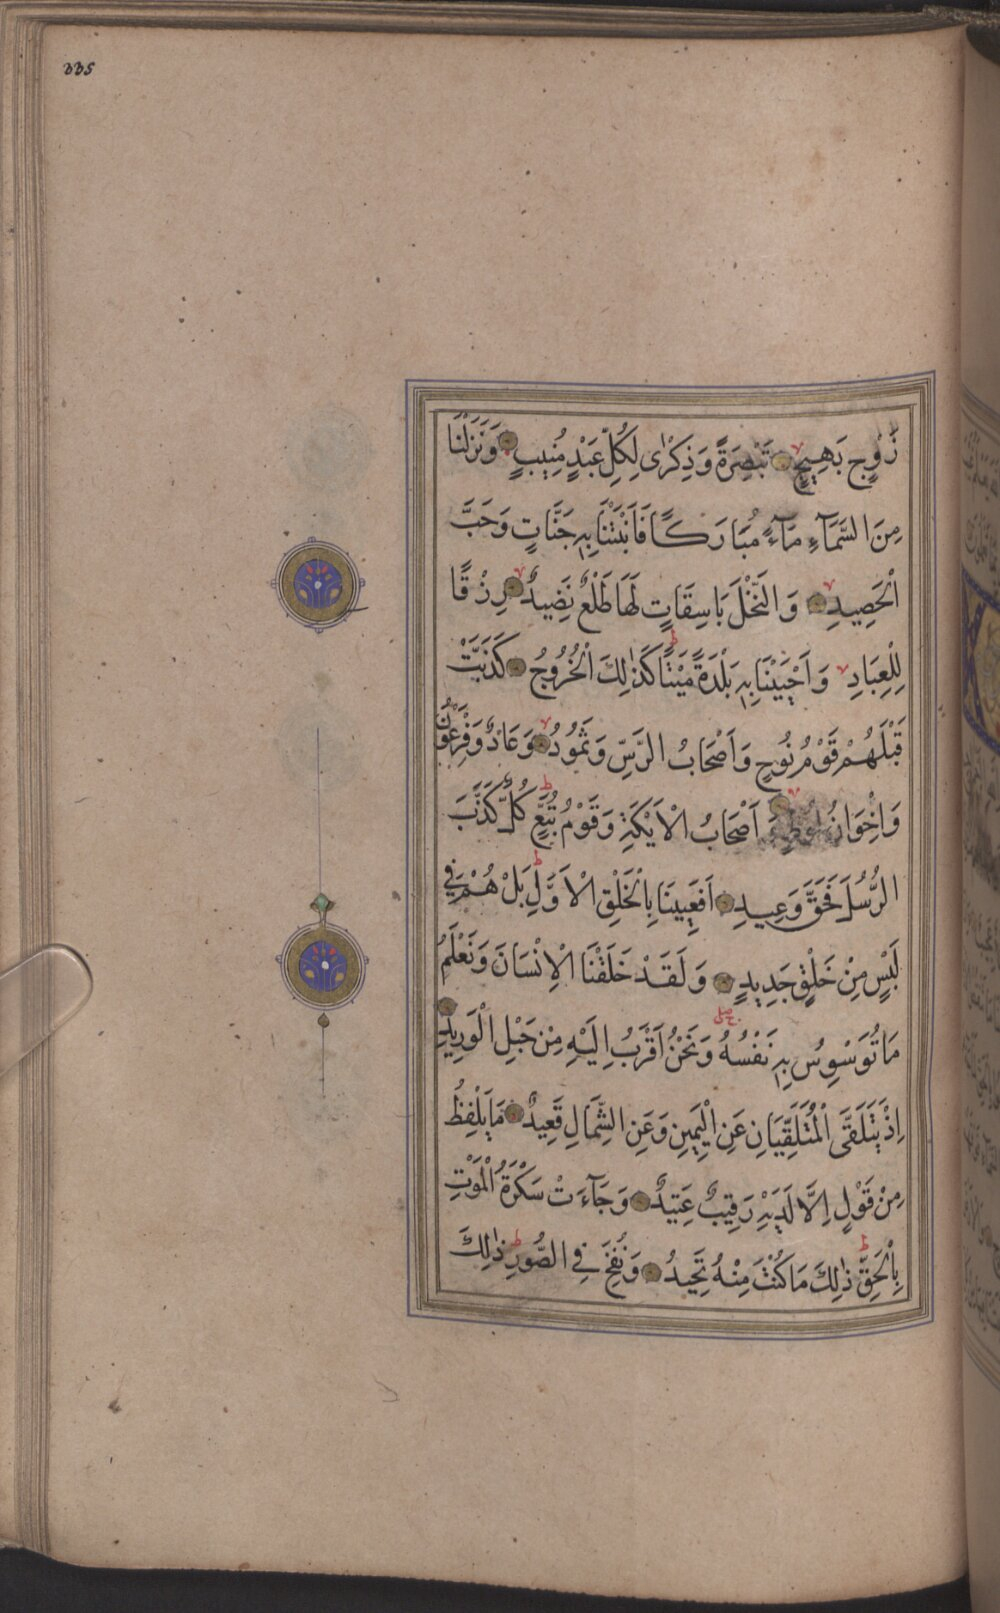 335
زَوْجٍ بَهِيجٍ تَبْصِرَةً وَذِكْرٰى لِكُلِّ عَبْدٍ مُنِيبٍ وَنَزَّلْنَا
مِنَ السَّمَآءِ مَآءً مُبَارَكًا فَاَنْبَتْنَا بِهِ جَنَّاتٍ وَحَبَّ
الْحَصِيدِ وَالنَّخْلَ بَاسِقَاتٍ لَهَا طَلْعٌ نَضِيدٌ رِزْقًا
لِلْعِبَادِ وَاَحْيَيْنَا بِهِ بَلْدَةً مَيْتًا كَذٰلِكَ الْخُرُوجُ كَذَّبَتْ
قَبْلَهُمْ قَوْمُ نُوحٍ وَاَصْحَابُ الرَّسِّ وَثَمُودُ وَعَادٌ وَفِرْعَوْنُ
وَاِخْوَانُ لُوطٍ وَاَصْحَابُ الْاَيْكَةِ وَقَوْمُ تُبَّعٍ كُلٌّ كَذَّبَ
الرُّسُلَ فَحَقَّ وَعِيدِ اَفَعَيِينَا بِالْخَلْقِ الْاَوَّلِ بَلْ هُمْ فِي
لَبْسٍ مِنْ خَلْقٍ جَدِيدٍ وَلَقَدْ خَلَقْنَا الْاِنْسَانَ وَنَعْلَمُ
مَا تُوَسْوِسُ بِهِ نَفْسُهُ وَنَحْنُ اَقْرَبُ اِلَيْهِ مِنْ حَبْلِ الْوَرِيدِ
اِذْ يَتَلَقَّى الْمُتَلَقِّيَانِ عَنِ الْيَمِينِ وَعَنِ الشِّمَالِ قَعِيدٌ مَا يَلْفِظُ
مِنْ قَوْلٍ اِلَّا لَدَيْهِ رَقِيبٌ عَتِيدٌ وَجَآءَتْ سَكْرَةُ الْمَوْتِ
بِالْحَقِّ ذٰلِكَ مَا كُنْتَ مِنْهُ تَحِيدُ وَنُفِخَ فِي الصُّورِ ذٰلِكَ